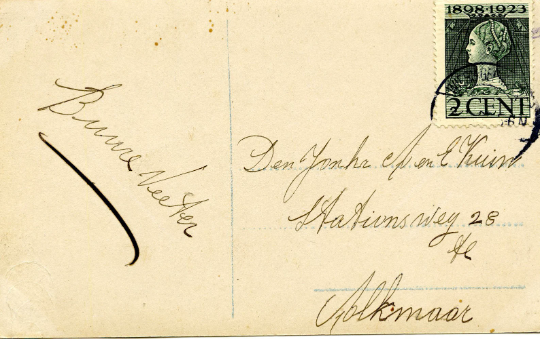 1898-1923
2 CENT
6N
Buure Veeken
Den Jonhr en E Kuin
Stationsweg 28
te
Alkmaar